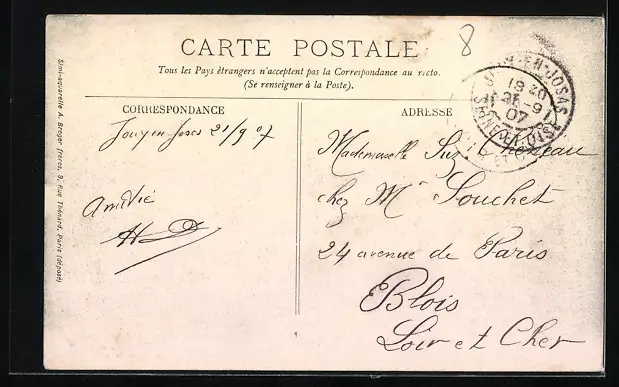 CARTE POSTALE
8
Tous les Pays étrangers n'acceptent pas la Correspondance au recto.
(Se renseigner à la Poste).
CORRESPONDANCE
ADRESSE
Jouy en Josas 21/9 07
Amitié
Mademoiselle Suz. Cheneau
chez Mr Souchet
24 avenue de Paris
Blois
Loir et Cher
JOUY-EN-JOSAS
18 20
21 -9
07
SEINE-ET-OISE
Simili-aquarelle A. Breger frères, 9, Rue Thénard, Paris (déposé)